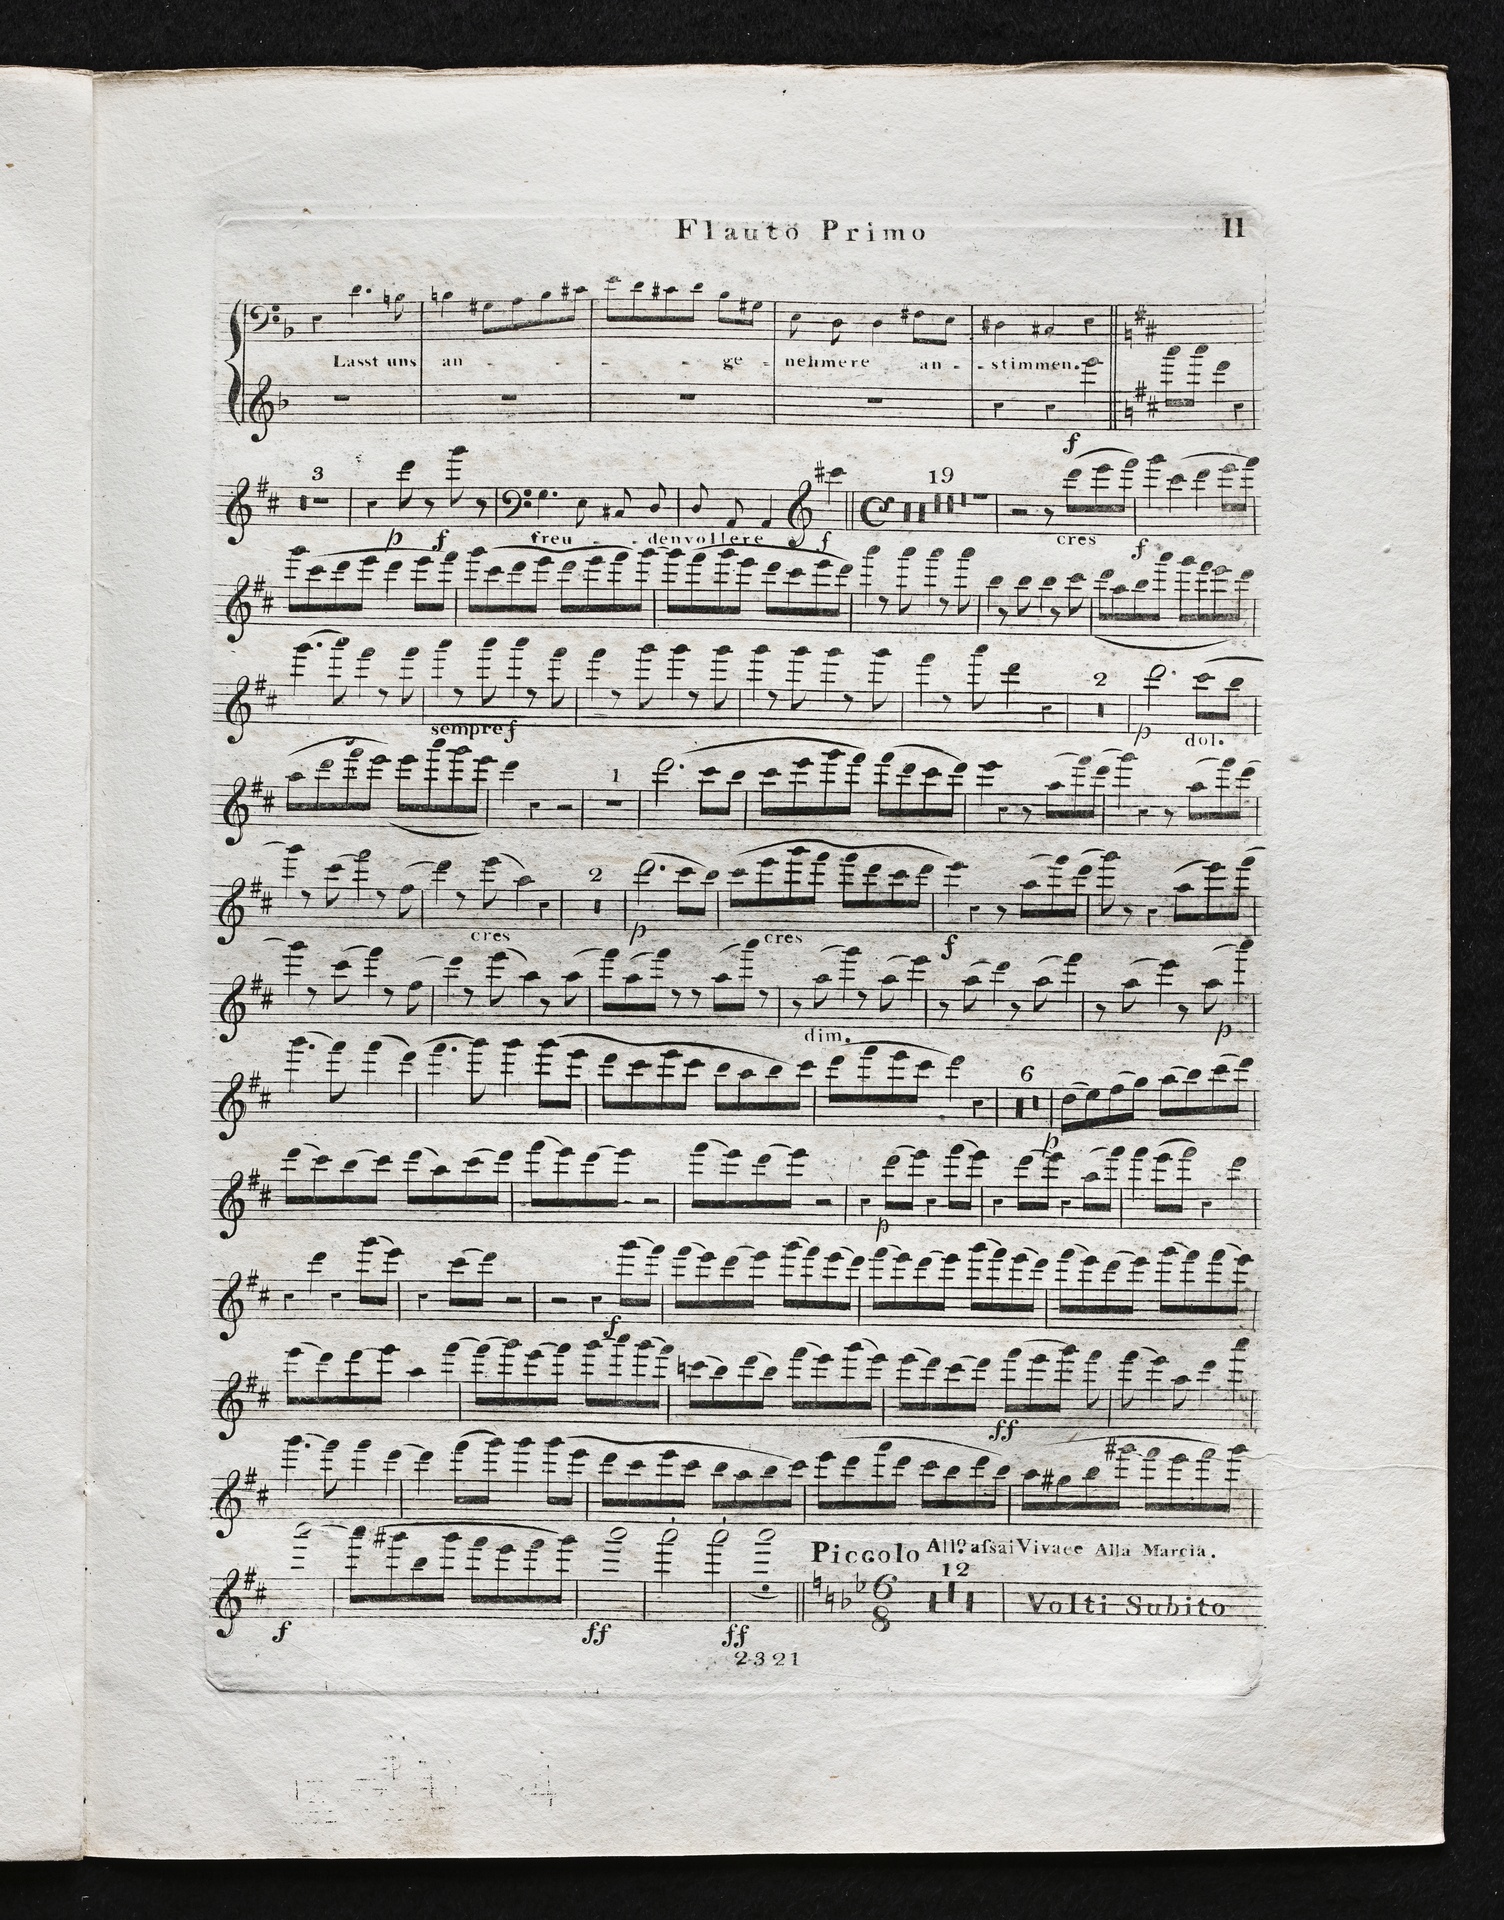 Flauto Primo 11
Lasst uns an - - - - ge - nehmere an - - stimmen.
f
3 19
p f freu - - denvollere f cres f
2
sempre f p dol.
1
2
cres p cres f
dim. p
6
p
p
f
ff
Piccolo All.º assai Vivace Alla Marcia.
12
6
8
Volti Subito
f ff ff
2321